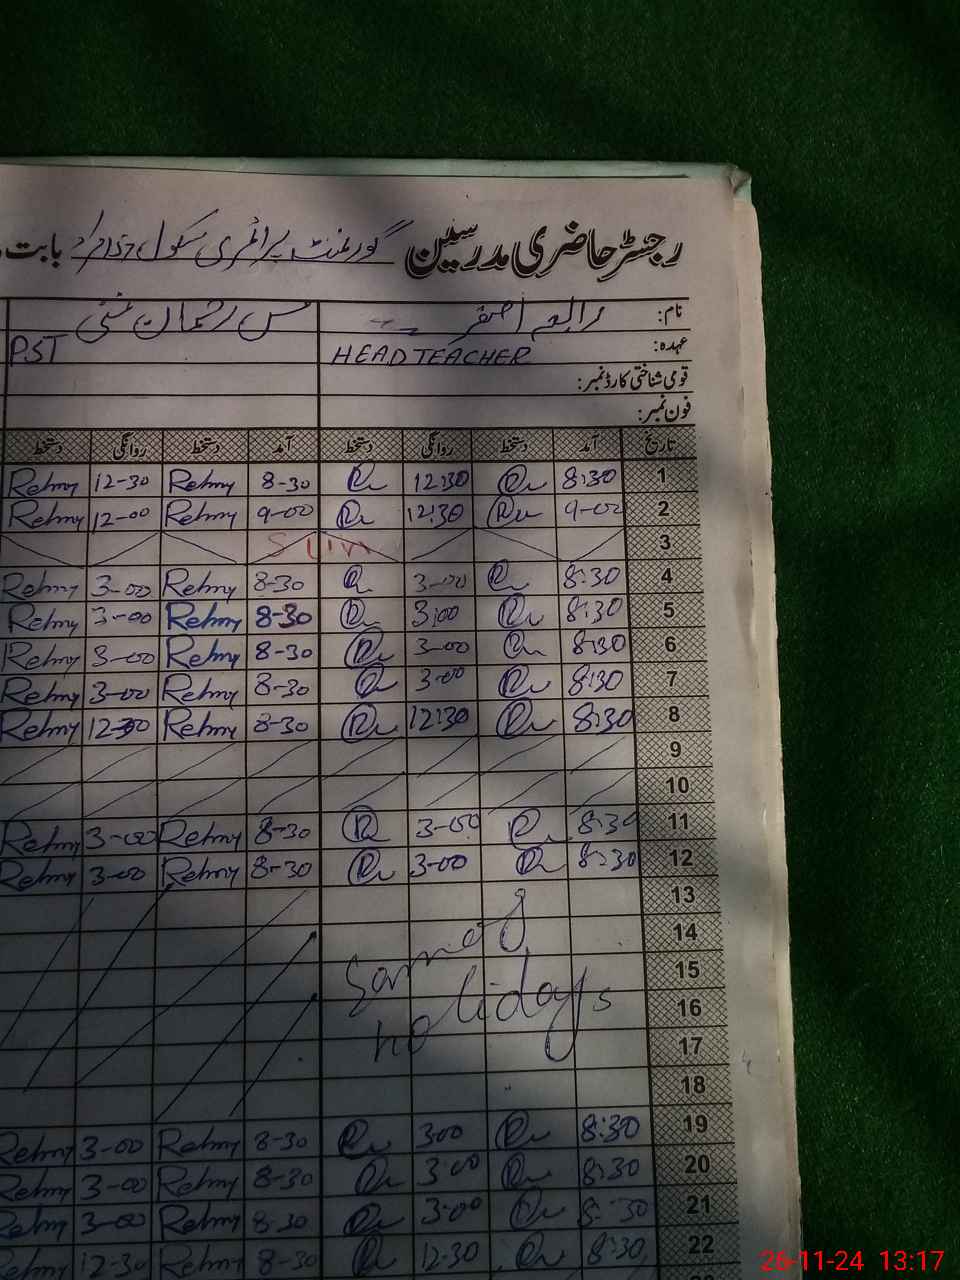 رجسٹر حاضری مدرسین گورنمنٹ پرائمری سکول بابت
نام: رابعہ اصغر مس
عہدہ: HEAD TEACHER PST
قومی شناختی کارڈ نمبر:
فون نمبر:
تاریخ آمد دستخط روانگی دستخط آمد دستخط روانگی دستخط
1 8:30 12:30 8-30 Rehmy 12-30 Rehmy
2 9-00 12:30 9-00 Rehmy 12-00 Rehmy
3 SUN
4 8:30 3-00 8-30 Rehmy 3-00 Rehmy
5 8:30 3:00 8-30 Rehmy 3-00 Rehmy
6 8:30 3-00 8-30 Rehmy 3-00 Rehmy
7 8:30 3-00 8-30 Rehmy 3-00 Rehmy
8 8:30 12:30 8-30 Rehmy 12-30 Rehmy
9
10
11 8:30 3-00 8-30 Rehmy 3-00 Rehmy
12 8:30 3-00 8-30 Rehmy 3-00 Rehmy
13
14
15
16 holidays
17
18
19 8:30 3:00 8-30 Rehmy 3-00 Rehmy
20 8:30 3:00 8-30 Rehmy 3-00 Rehmy
21 8:30 3:00 8-30 Rehmy 3-00 Rehmy
22 8:30 12-30 8-30 Rehmy 12-30 Rehmy
26-11-24 13:17